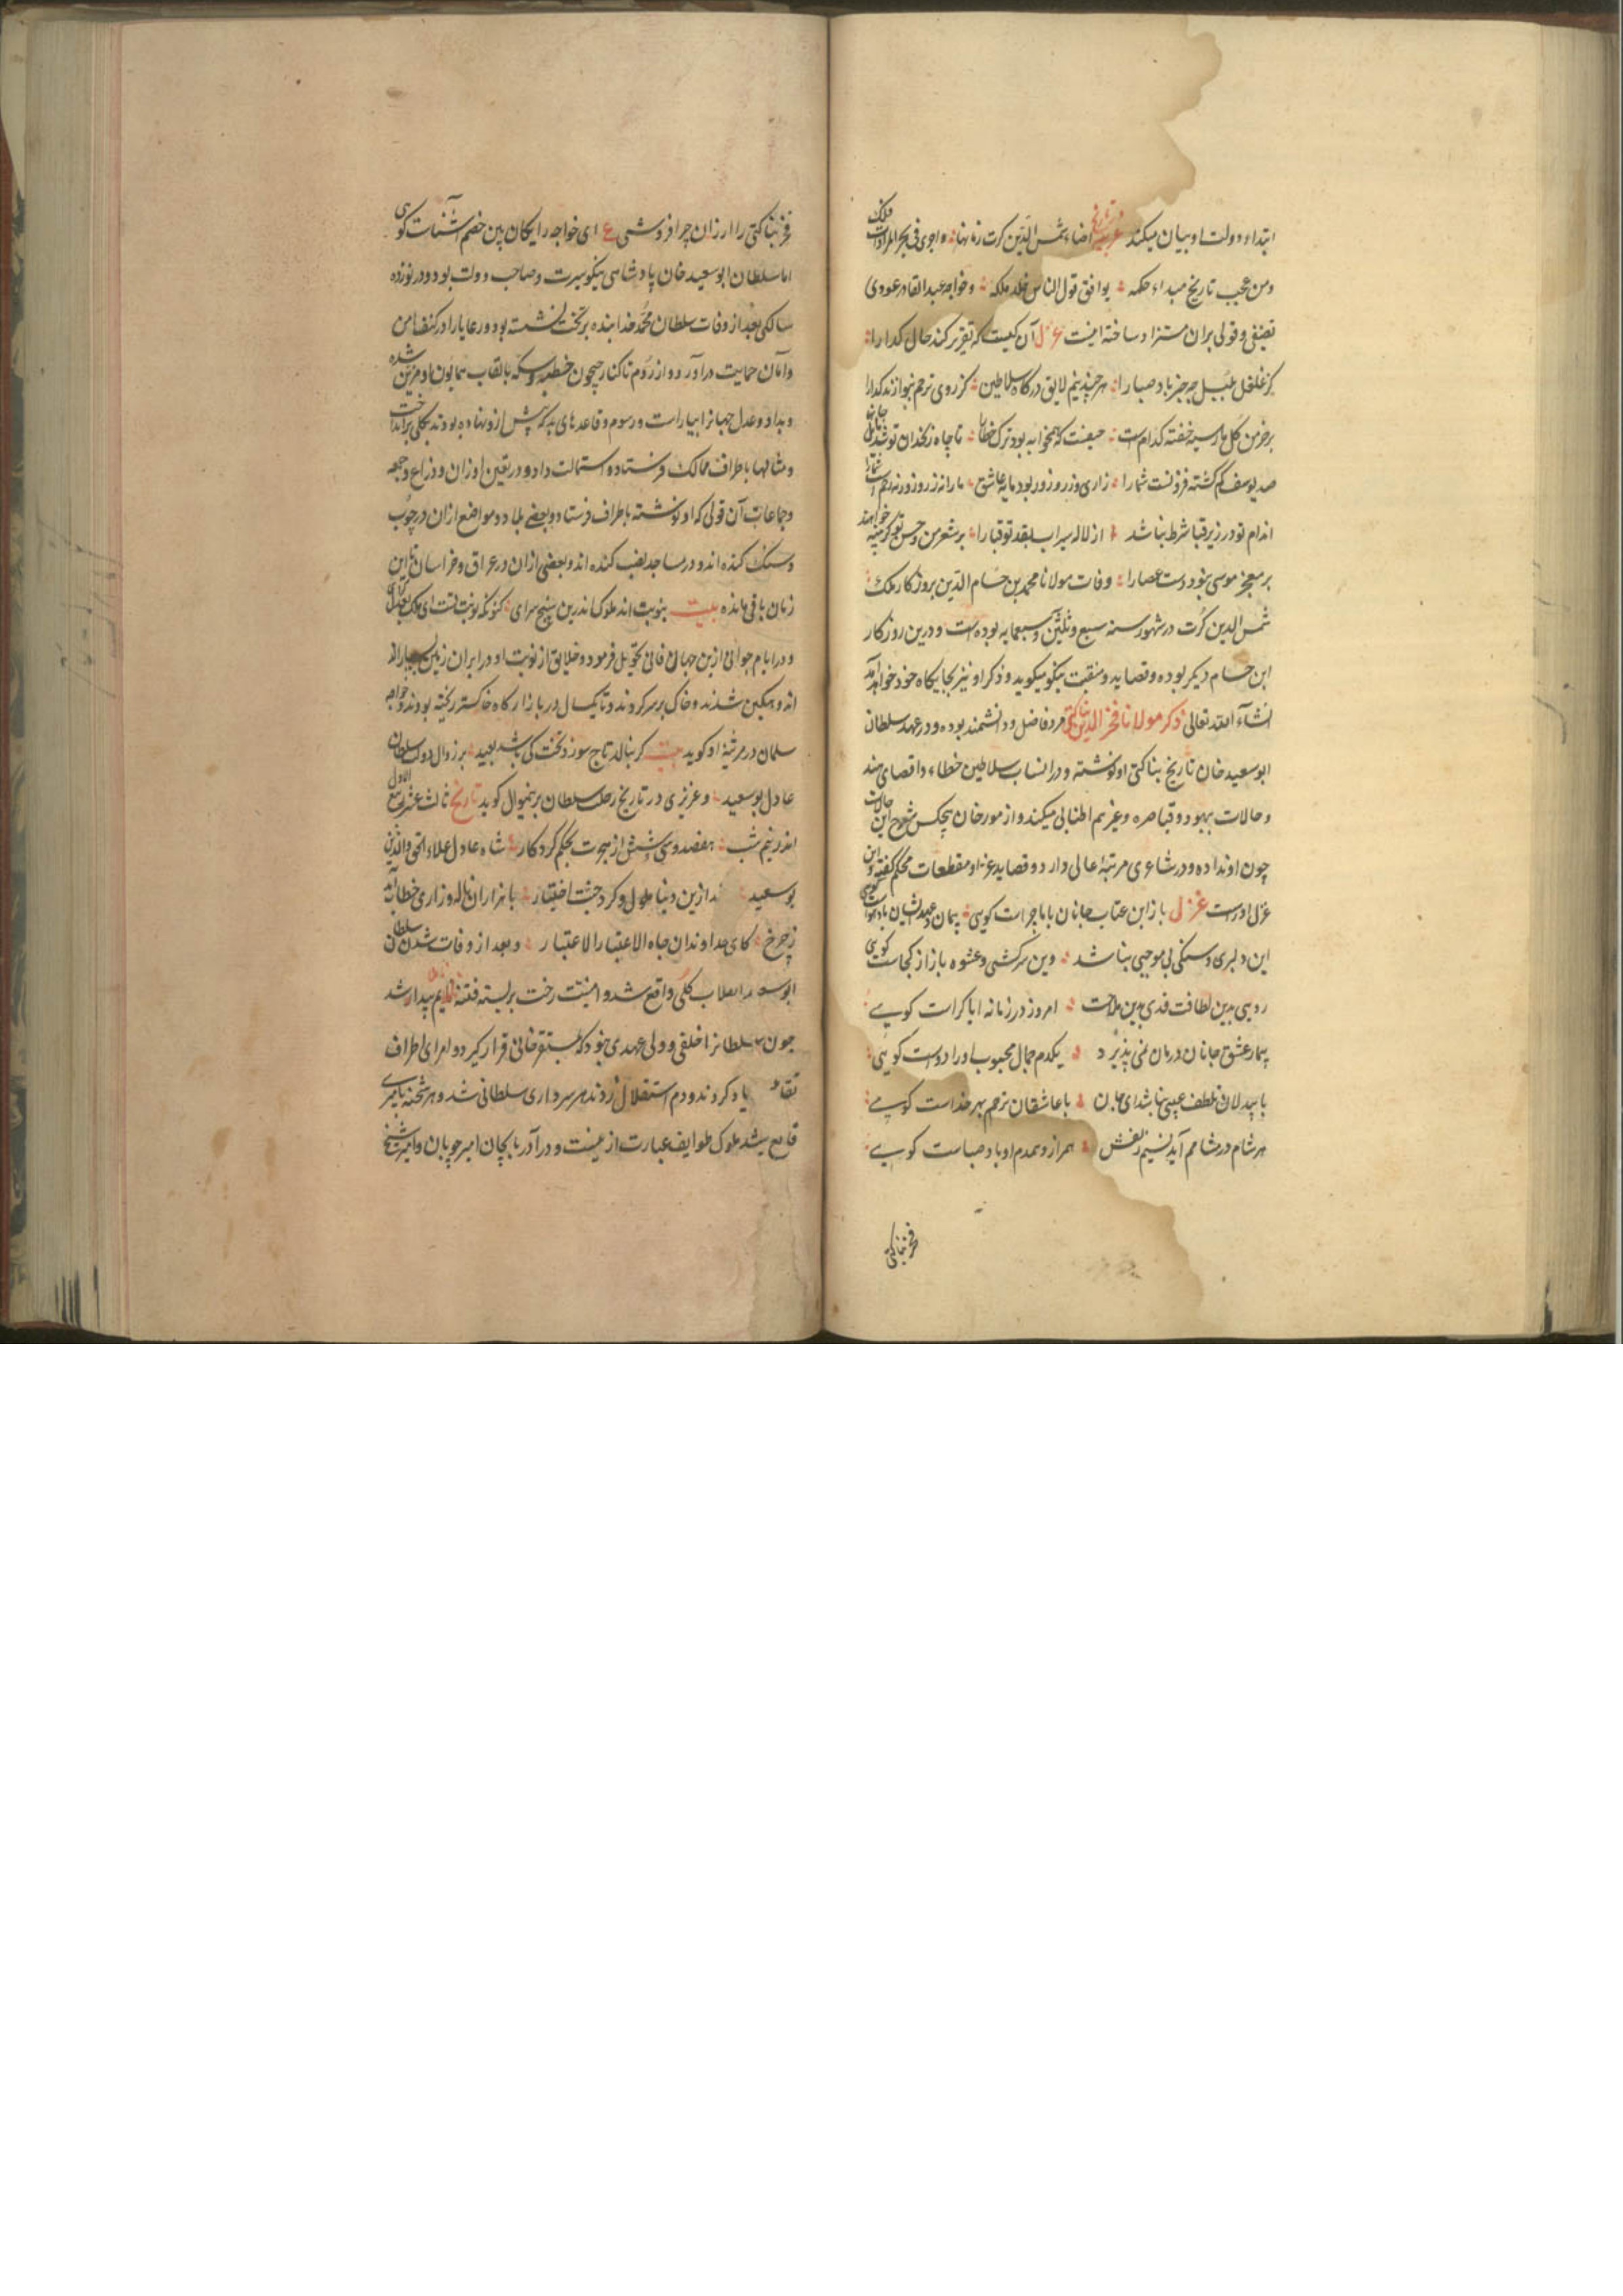 ابتداء دولت او بیان میکند عربیه تاریخ اضاء شمس الدین کرت زمانها واجری فی بحر المرادات فلک
ومن عجب تاریخ مبداء حکمه یوافق قول الناس خلد ملکه وخواجه عبدالقادر عودی
تصنیفی وقولی بران مستزاد ساخته اینست غزل آن کیست که تقریر کند حال کدا را
کز غلغل بلبل چه خبر باد صبا را هر چند نیم لایق درکاه سلاطین کز روی ترحم بنوازند کدا را
بر خرمن کل مار سیه خفته کدامست همخوابه بود ترک خطا را تا چاه زنخدان تو شد
صد یوسف کم کشته فزونست شما را زاری وزر وزور بود مایه عاشق ما را نه زر و زور و نه رحم است شما را
اندام تو در زیر قبا شرط نباشد از لاله سیراب قبا را بر شعر من وحسن تو کر بینه خواهند
بر معجز موسی بنود دست عصا را وفات مولانا محمد بن حسام الدین بروزکار ملک
شمس الدین کرت در شهور سنه سبع وثلثین وسبعمایه بوده است ودرین روزکار
ابن حسام دیکر بوده وقصاید ومنقبت نیکو میکوید وذکر او نیز بجایکاه خود خواهد آمد
انشاء الله تعالی ذکر مولانا فخر الدین بناکتی مرد فاضل ودانشمند بوده ودر عهد سلطان
ابو سعید خان تاریخ بناکتی او نوشته ودر انساب سلاطین خطاء واقصای هند
وحالات یهود وقیاصره وغیرهم اطنابی میکند واز مورخان هیچکس شرح این حالات
چون او نداده ودر شاعری مرتبه عالی دارد وقصاید غرا ومقطعات محکم کفته واین
غزل اوراست غزل باز این عتاب جانان با ما چراست کویی پیمان وعهد ایشان باد هواست کویی
این دلبری وسنکی بی موجبی نباشد وین سرکشی وعشوه باز از کجاست کویی
رویی بدین لطافت قدی بدین ملاحت امروز در زمانه ایا کراست کویی
بیمار عشق جانان درمان نمی پذیرد یکدم جمال محبوب او را دواست کویی
با بیدلان تلطف عیبی نباشد ای جان با عاشقان ترحم بهر خداست کویی
هر شام در مشامم آید نسیم زلفش همراز وهمدم او باد صباست کویی
فخر بناکتی
فخر بناکتی را ارزان چرا فروشی ع ای خواجه رایکان بین خصم آشناست کویی
اما سلطان ابو سعید خان پادشاهی نیکو سیرت وصاحب دولت بود ودر نوزده
سالکی بعد از وفات سلطان محمد خدابنده بر تخت نشسته بود ورعایا را در کنف امن
وامان حمایت در آورد واز روم تا کنار جیحون خطبه وسکه بالقاب همایون او مزین شده
وبداد وعدل جهانرا بیاراست ورسوم وقاعدهای بد که پیش ازو نهاده بودند بکلی برانداخت
ومثالها باطراف ممالک فرستاد واستمالت داد ودر تعین اوزان وذراع وجمعه
وجماعات آن قولی که او نوشته باطراف فرستاد وبعضی بلاد ومواضع ازان در چوب
وسنک کنده اند ودر مساجد نصب کنده اند وبعضی ازان در عراق وخراسان تا این
زمان باقی مانده بیت بنوبت اند ملوک اندرین سپنج سرای کنونکه نوبت تست ای ملک بعدل کرای
ودر ایام جوانی ازین جهان فانی تحویل فرمود وخلایق از نوبت او در ایران زمین
اندوهکین شدند وخاک بر سر کردند وتا یکسال در بازارکاه خاکستر ریخته بودند وخواجه
سلمان در مرثیه او کوید بیت کر بنالد تاج سوزد تخت کی باشد بعید بر زوال دولت سلطان
عادل بو سعید وعزیزی در تاریخ رحلت سلطان برینموال کوید تاریخ ثالث عشر ربیع الاول
اندر نیم شب هفصد وسی وشش از هجرت بحکم کردکار شاه عادل علاء الحق والدین
بو سعید ازین دنیا ملول وکرد جنت اختیار با هزاران ناله وزاری خطاب آمد
ز چرخ کای خداوندان جاه الاعتبار الاعتبار وبعد از وفات شدن سلطان
انقلاب کلی واقع شد وامنیت رخت بربسته فتنه قایم بیدار شد
چون سلطانرا خلفی وولی عهدی نبود که مستقر خانی قرار کیرد وامرای اطراف
یاد کردند ودم استقلال زدند هر سرداری سلطانی شد وهر شحنه بامیری
قانع نمیشد ملوک طوایف عبارت از عینست ودر آذربایجان امیر چوبان وامیر شیخ